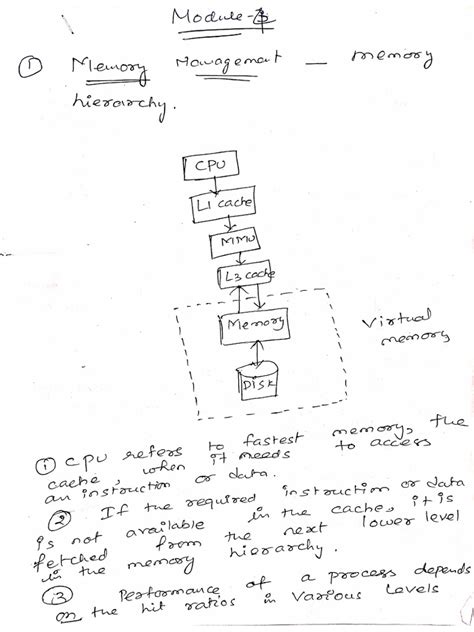 Module-3
① Memory Management — memory
hierarchy.
CPU
L1 cache
MMU
L3 cache
Memory
Virtual
memory
Disk
① CPU refers to fastest memory, the
cache, when it needs to access
an instruction or data.
② If the required instruction or data
is not available in the cache, it is
fetched from the next lower level
in the memory hierarchy.
③ Performance of a process depends
on the hit ratios in various levels